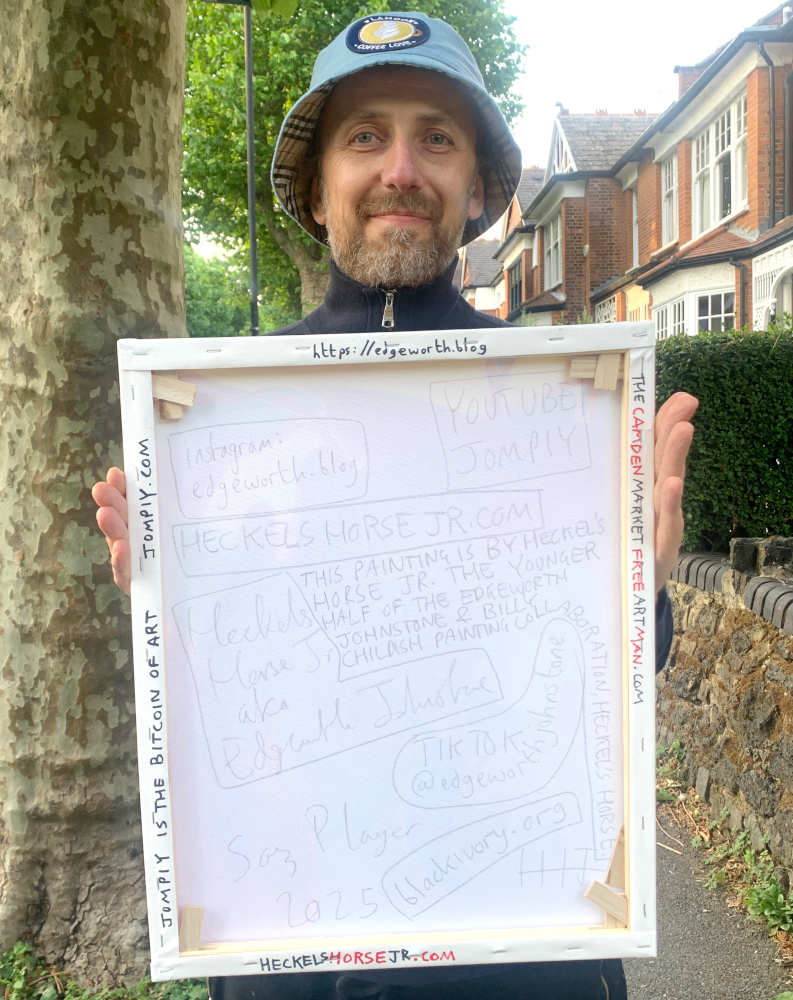 LAMBON
COFFEE LOVE
https://edgeworth.blog
instagram:
edgeworth.blog
YOUTUBE
JOMPIY
HECKELS HORSE JR.COM
THIS PAINTING IS BY HECKEL'S
HORSE JR. THE YOUNGER
HALF OF THE EDGEWORTH
JOHNSTONE & BILLY
CHILDISH PAINTING COLLABORATION, HECKEL'S HORSE
Heckels
Horse Jr
aka
Edgeworth Johnstone
TIKTOK:
@edgeworthjohnstone
Saz Player
2025
blackivory.org
HHJ
JOMPIY.COM
JOMPIY IS THE BITCOIN OF ART
THE CAMDEN MARKET FREE ART MAN.COM
HECKELSHORSEJR.COM